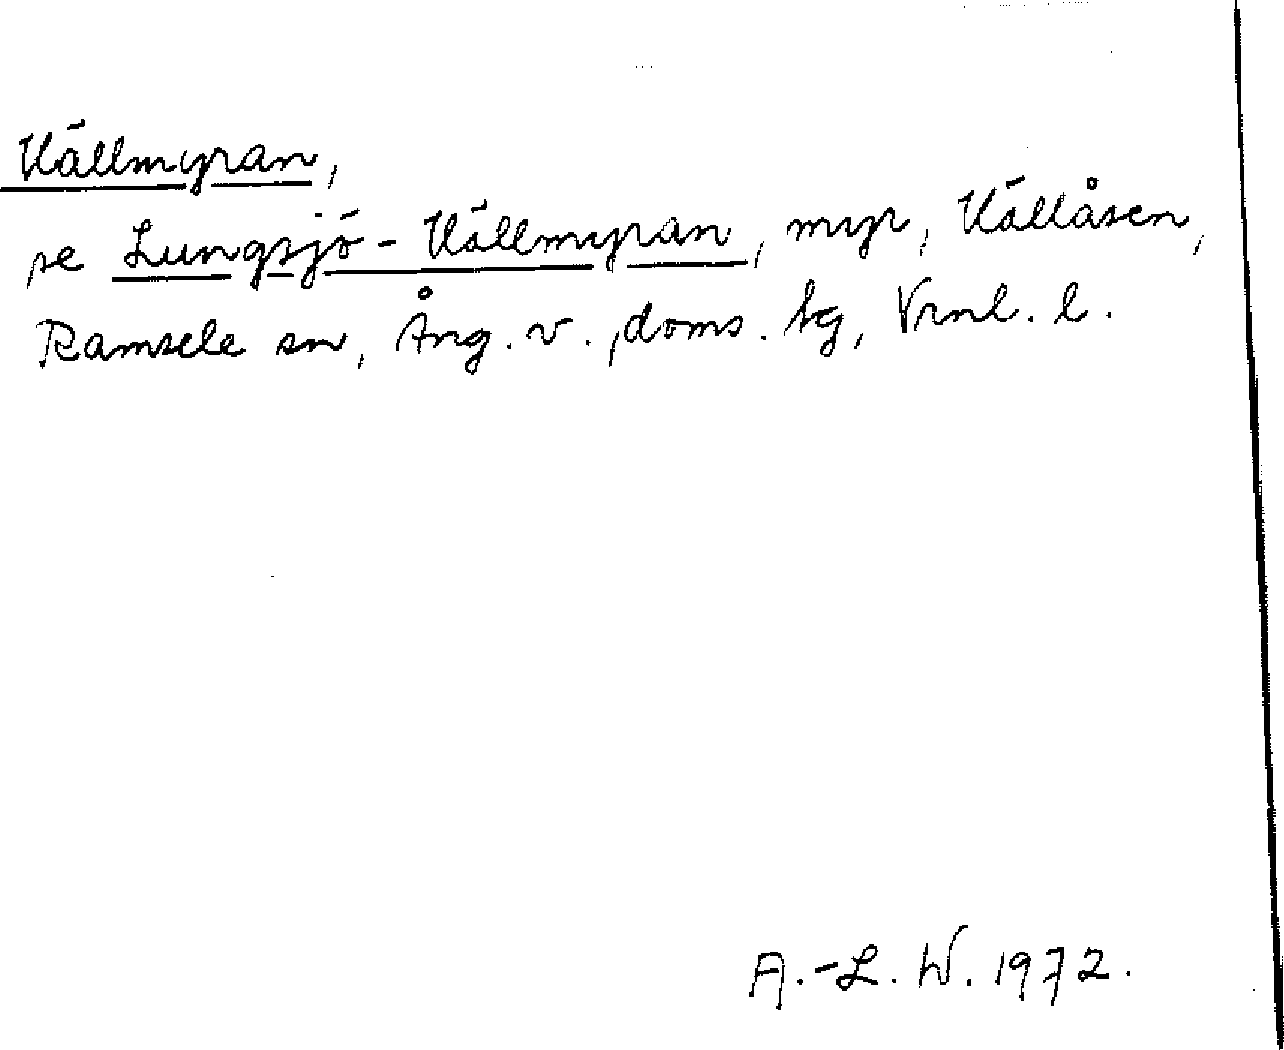 Källmyran,
se Lungsjö-Källmyran, myr, Källåsen,
Ramsele sn, Ång. v., doms. bg, Vrnl. l.
A.-L. W. 1972.